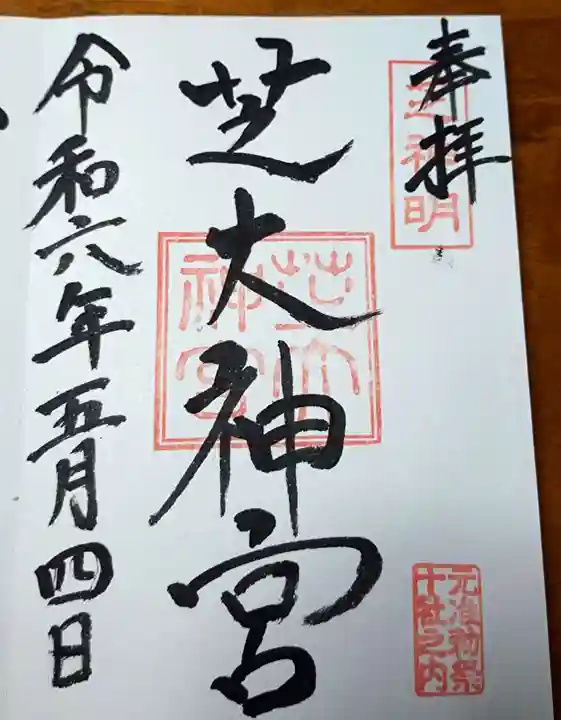 奉拝
芝大神宮
芝大
神宮
元准勅祭
十社之内
令和六年五月四日